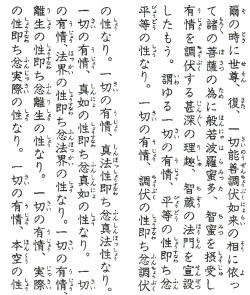 爾の時に世尊、復、一切能善調伏如来の相に依っ
て諸の菩薩の為に般若波羅蜜多、智蜜を摂受し
有情を調伏する甚深の理趣、智蔵の法門を宣説
したもう。謂ゆる一切の有情、平等の性即ち忿
平等の性なり。一切の有情、調伏の性即ち忿調伏
の性なり。一切の有情、真法の性即ち忿真法性なり。
一切の有情、真如の性即ち忿真如の性なり。一切
の有情、法界の性即ち忿法界の性なり。一切の有情、
離生の性即ち忿離生の性なり。一切の有情、実際
の性即ち忿実際の性なり。一切の有情、本空の性